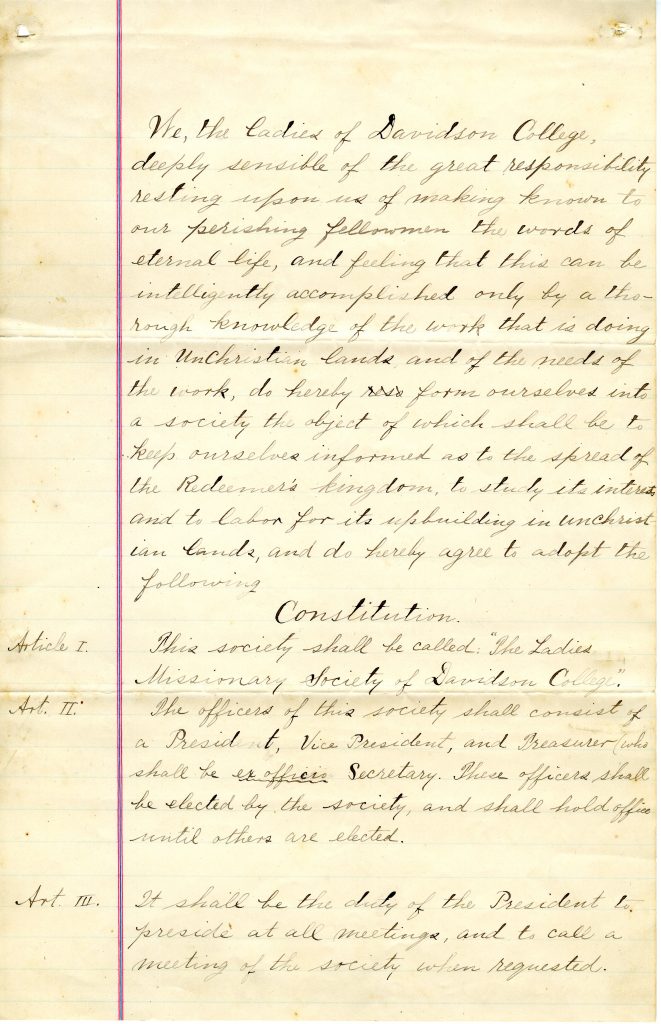 We, the ladies of Davidson College,
deeply sensible of the great responsibility
resting upon us of making known to
our perishing fellowmen the words of
eternal life, and feeling that this can be
intelligently accomplished only by a tho-
rough knowledge of the work that is doing
in Unchristian lands and of the needs of
the work, do hereby form ourselves into
a society the object of which shall be to
keep ourselves informed as to the spread of
the Redeemer's kingdom, to study its interests
and to labor for its upbuilding in unchrist-
ian lands, and do hereby agree to adopt the
following
Constitution.
Article I. This society shall be called: "The Ladies
Missionary Society of Davidson College".
Art. II. The officers of this society shall consist of
a President, Vice President, and Treasurer (who
shall be ex officio Secretary. These officers shall
be elected by the society, and shall hold office
until others are elected.
Art. III. It shall be the duty of the President to
preside at all meetings, and to call a
meeting of the society when requested.